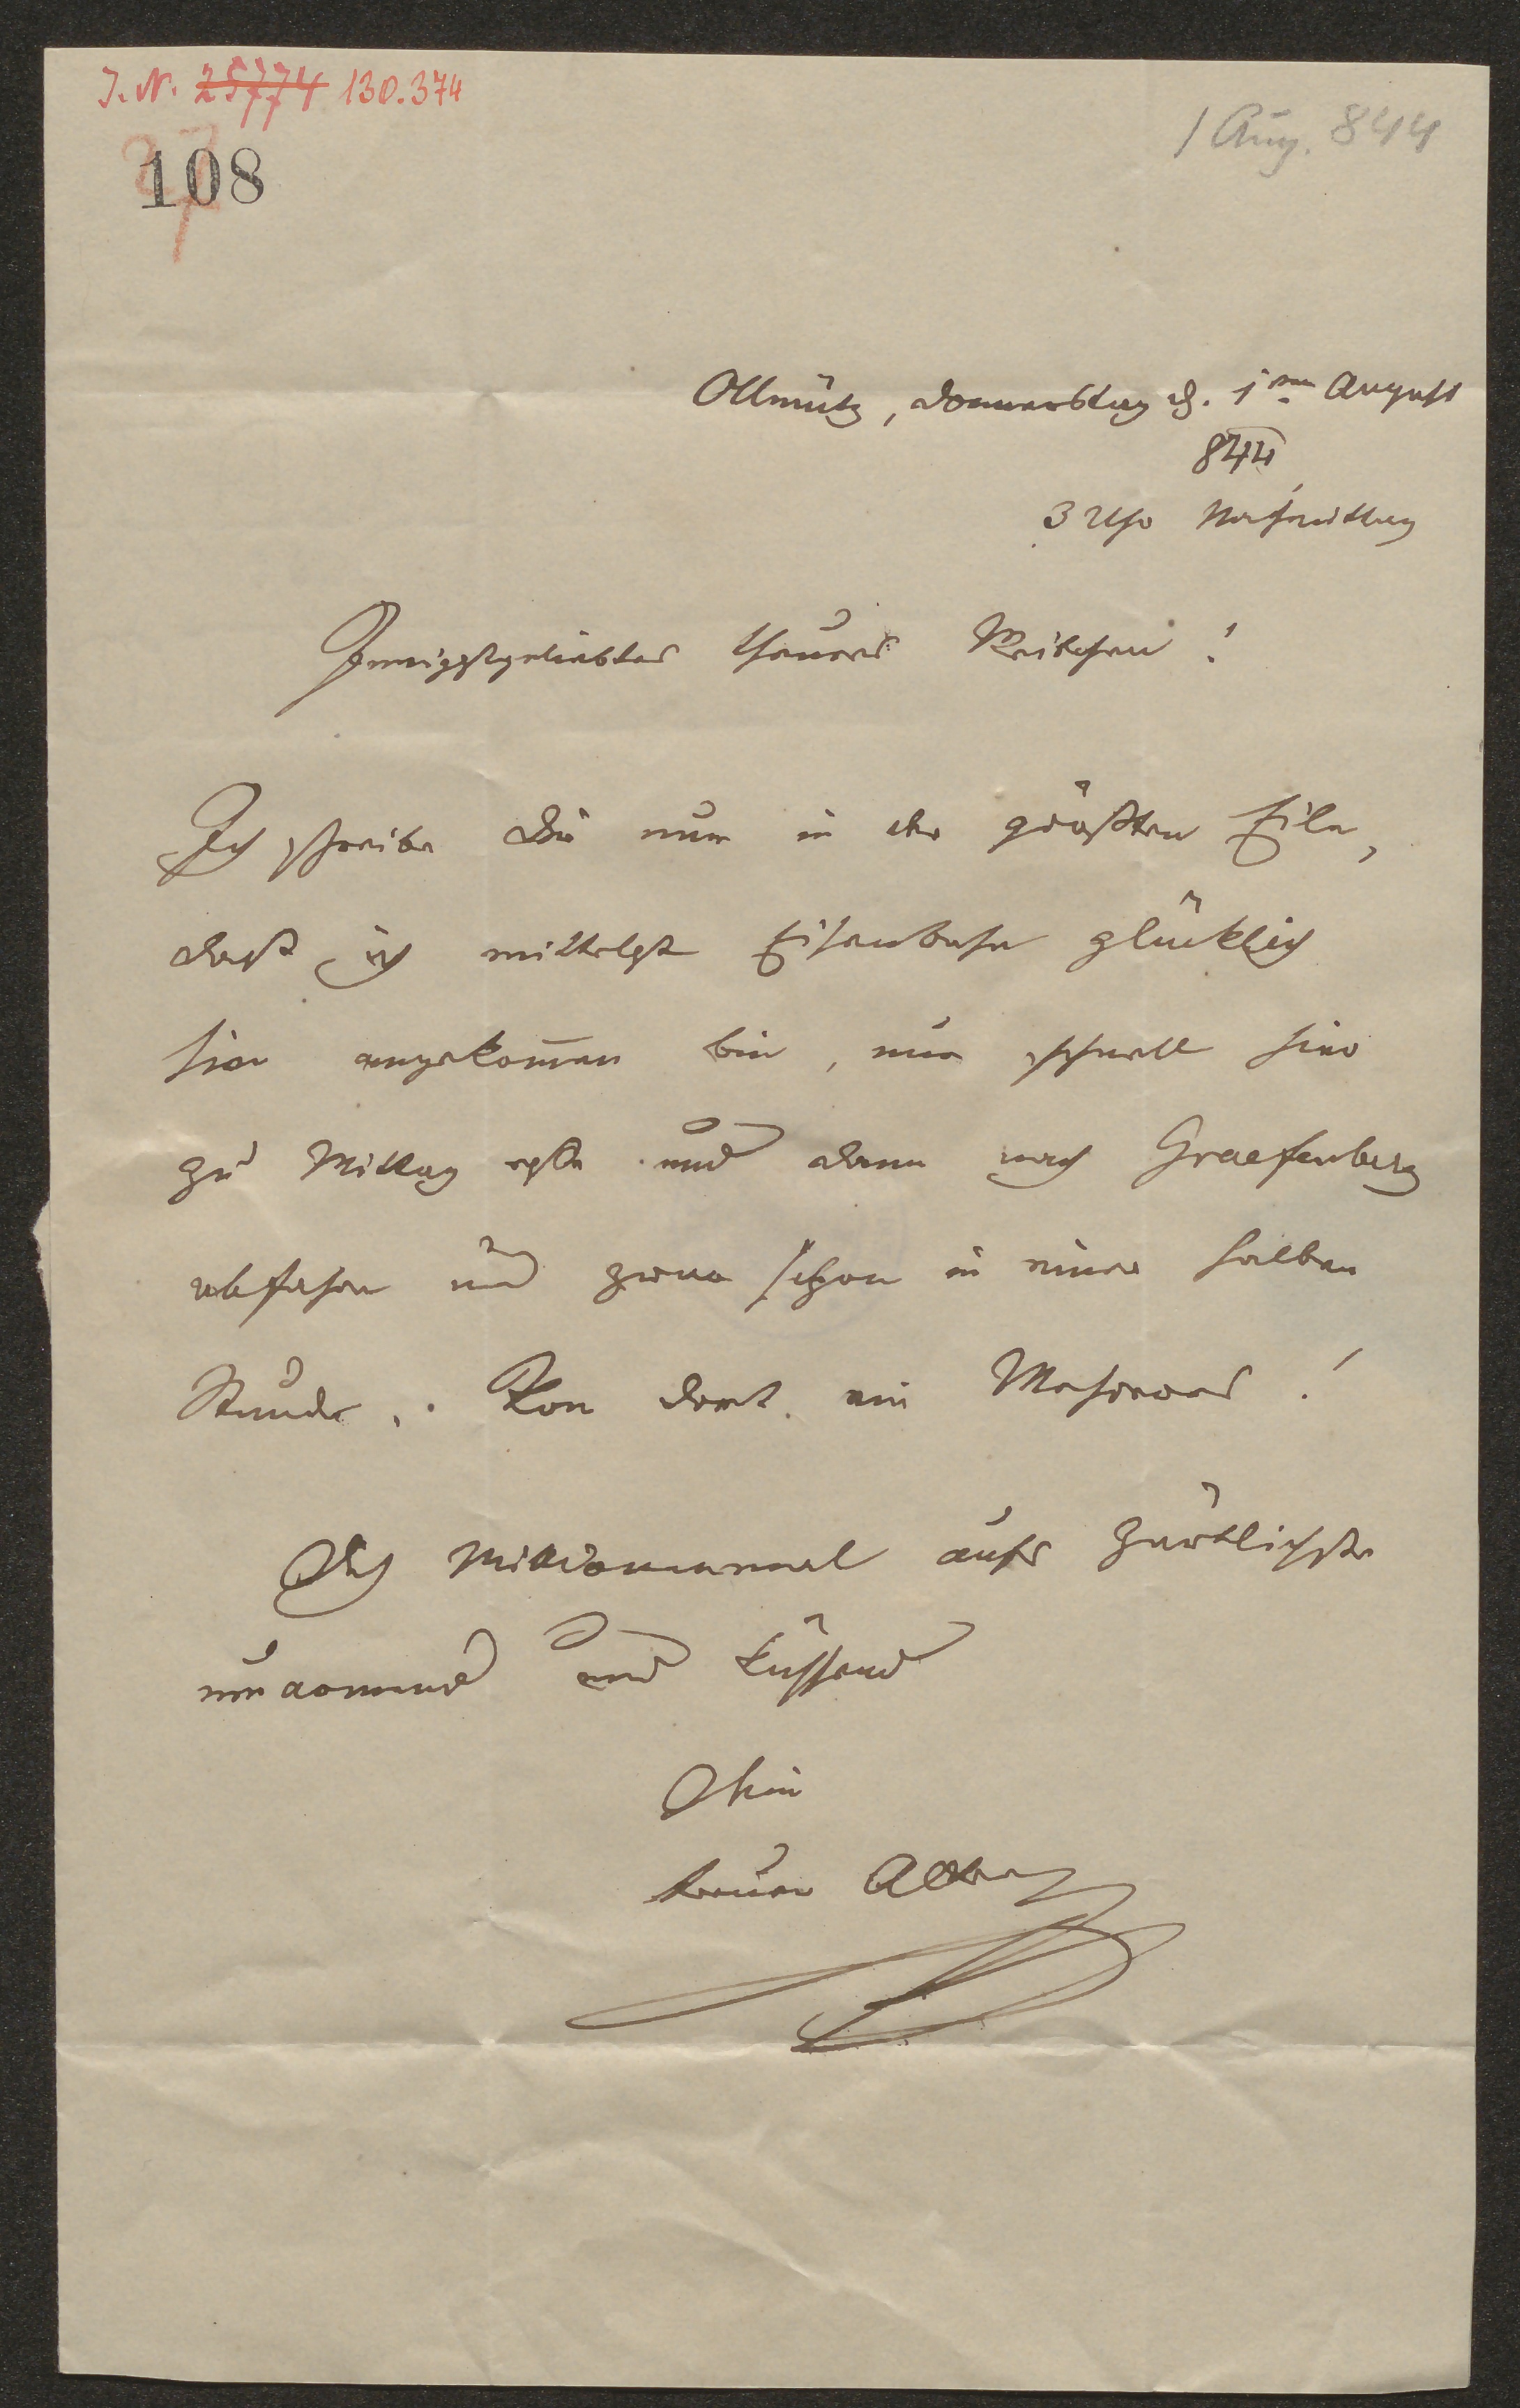 J. N. 25774 130.374
108
27
1 Aug. 844
Ollmütz, Donnerstag d. 1ten August
844
3 Uhr Nachmittag
Innigstgeliebtes theures Weibchen!
Ich schreibe Dir nur in der größten Eile,
daß ich mittelst Eisenbahn glücklich
hier angekom̅en bin, nur schnell hier
zu Mittag esse und dann nach Graefenberg
abfahre und zwar schon in einer halben
Stunde. Von dort ein Mehreres!
Dich Millionenmal aufs zärtlichste
umarmend und küssend
Dein
treuer Alter